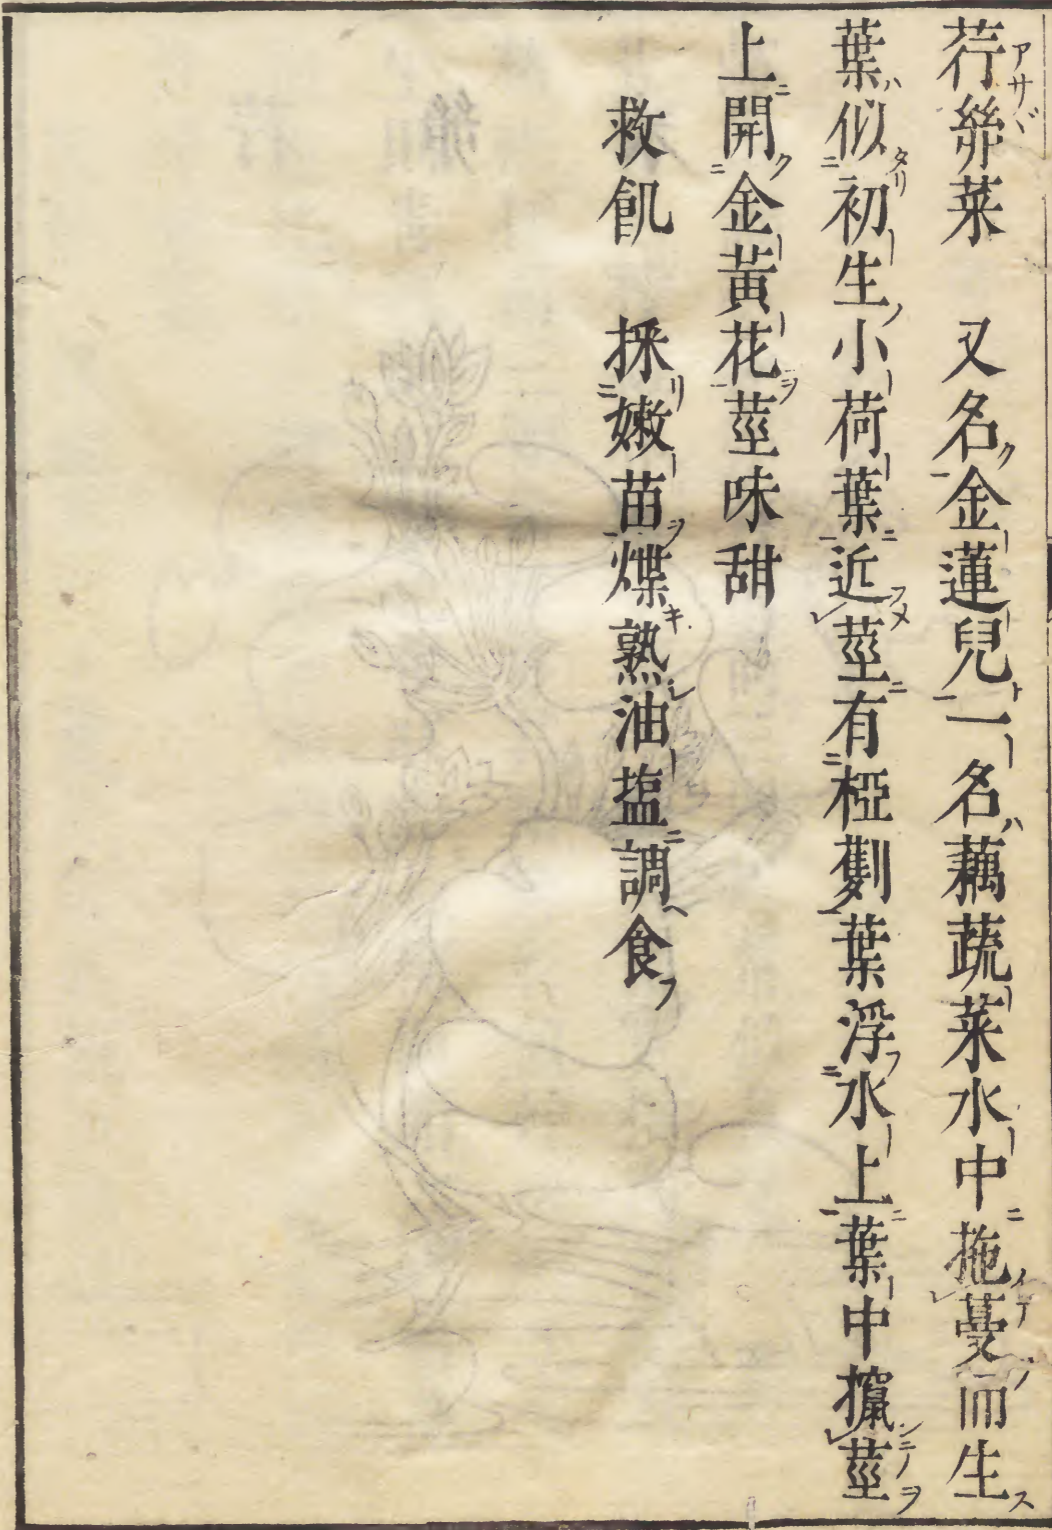 荇絲菜 又名金蓮兒一名藕蔬菜水中拖蔓而生
葉似初生小荷葉近莖有椏劐葉浮水上葉中攛莖
上開金黃花莖味甜
救飢 採嫩苗煠熟油塩調食